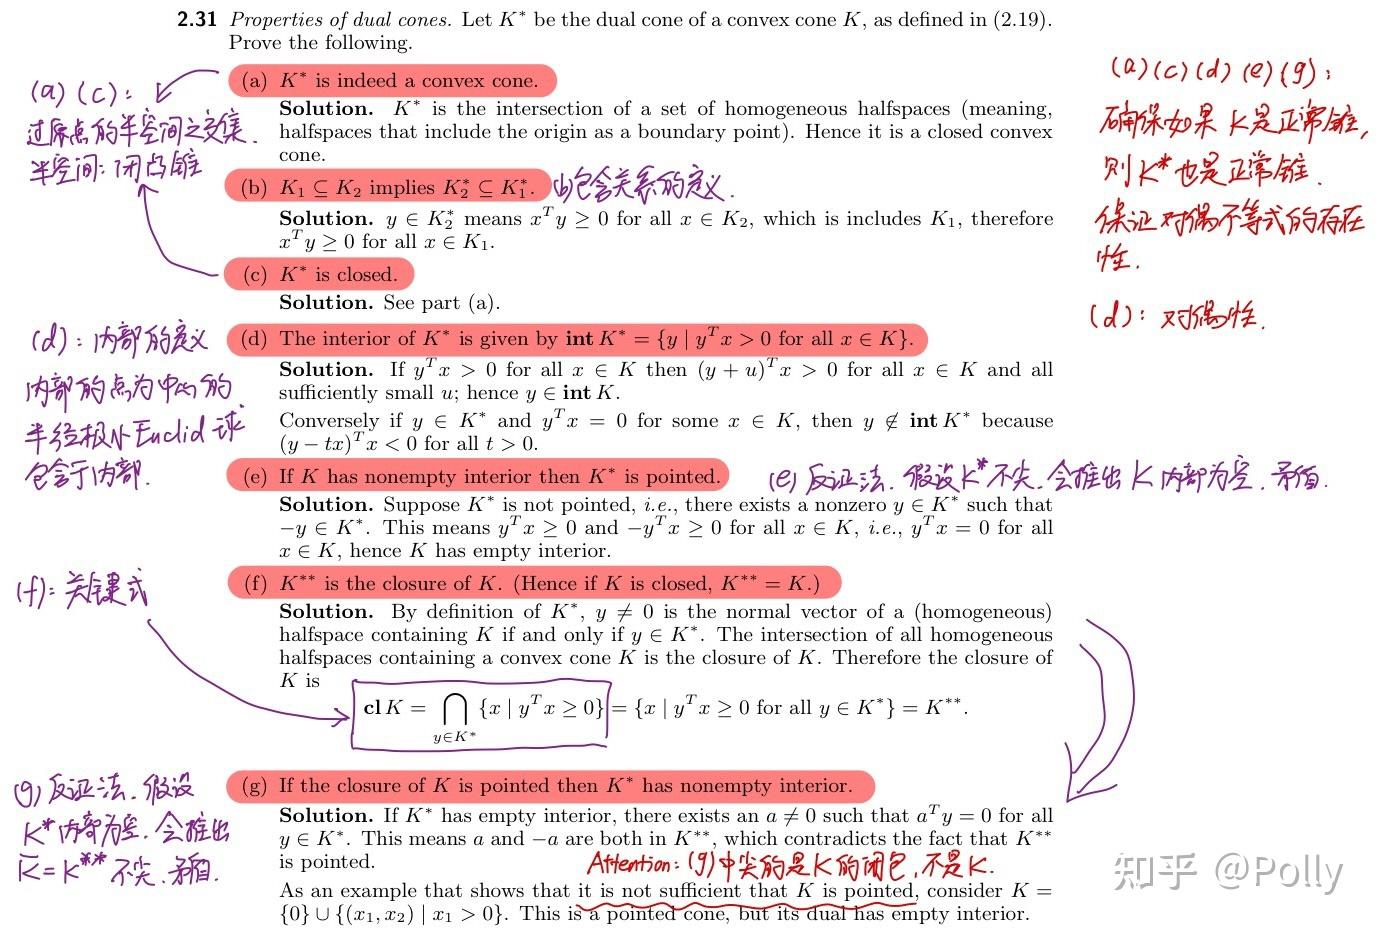 2.31 Properties of dual cones. Let K* be the dual cone of a convex cone K, as defined in (2.19).
Prove the following.
(a) K* is indeed a convex cone.
Solution. K* is the intersection of a set of homogeneous halfspaces (meaning,
halfspaces that include the origin as a boundary point). Hence it is a closed convex
cone.
(a) (c):
过原点的半空间之交集.
半空间:闭凸锥
(a)(c)(d)(e)(g):
确保如果K是正常锥,
则K*也是正常锥.
保证对偶不等式的存在
性.
(d): 对偶性.
(b) K₁ ⊆ K₂ implies K₂* ⊆ K₁*.
(b)包含关系的定义.
Solution. y ∈ K₂* means xᵀy ≥ 0 for all x ∈ K₂, which is includes K₁, therefore
xᵀy ≥ 0 for all x ∈ K₁.
(c) K* is closed.
Solution. See part (a).
(d) The interior of K* is given by int K* = {y | yᵀx > 0 for all x ∈ K}.
Solution. If yᵀx > 0 for all x ∈ K then (y + u)ᵀx > 0 for all x ∈ K and all
sufficiently small u; hence y ∈ int K.
Conversely if y ∈ K* and yᵀx = 0 for some x ∈ K, then y ∉ int K* because
(y − tx)ᵀx < 0 for all t > 0.
(d): 内部的定义
内部的点为中心的
半径极小Euclid球
包含于内部.
(e) If K has nonempty interior then K* is pointed.
(e) 反证法. 假设K*不尖. 会推出K内部为空. 矛盾.
Solution. Suppose K* is not pointed, i.e., there exists a nonzero y ∈ K* such that
−y ∈ K*. This means yᵀx ≥ 0 and −yᵀx ≥ 0 for all x ∈ K, i.e., yᵀx = 0 for all
x ∈ K, hence K has empty interior.
(f) K** is the closure of K. (Hence if K is closed, K** = K.)
(f): 关键式
Solution. By definition of K*, y ≠ 0 is the normal vector of a (homogeneous)
halfspace containing K if and only if y ∈ K*. The intersection of all homogeneous
halfspaces containing a convex cone K is the closure of K. Therefore the closure of
K is
cl K = ⋂ {x | yᵀx ≥ 0} = {x | yᵀx ≥ 0 for all y ∈ K*} = K**.
y∈K*
(g) If the closure of K is pointed then K* has nonempty interior.
Solution. If K* has empty interior, there exists an a ≠ 0 such that aᵀy = 0 for all
y ∈ K*. This means a and −a are both in K**, which contradicts the fact that K**
is pointed.
Attention: (g)中尖的是K的闭包, 不是K.
As an example that shows that it is not sufficient that K is pointed, consider K =
{0} ∪ {(x₁, x₂) | x₁ > 0}. This is a pointed cone, but its dual has empty interior.
(g) 反证法. 假设
K*内部为空. 会推出
K̄ = K** 不尖. 矛盾.
知乎 @Polly